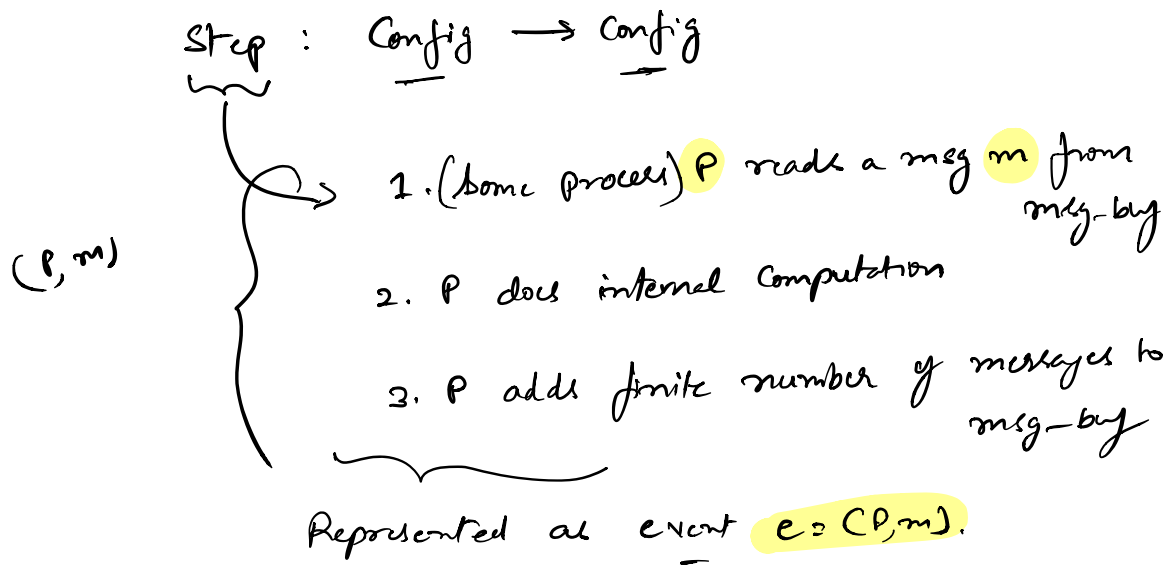 Step : Config → Config
1. (Some process) P reads a msg m from
msg-buf
(P, m)
2. P does internal computation
3. P adds finite number of messages to
msg-buf
Represented as event e = (P, m).